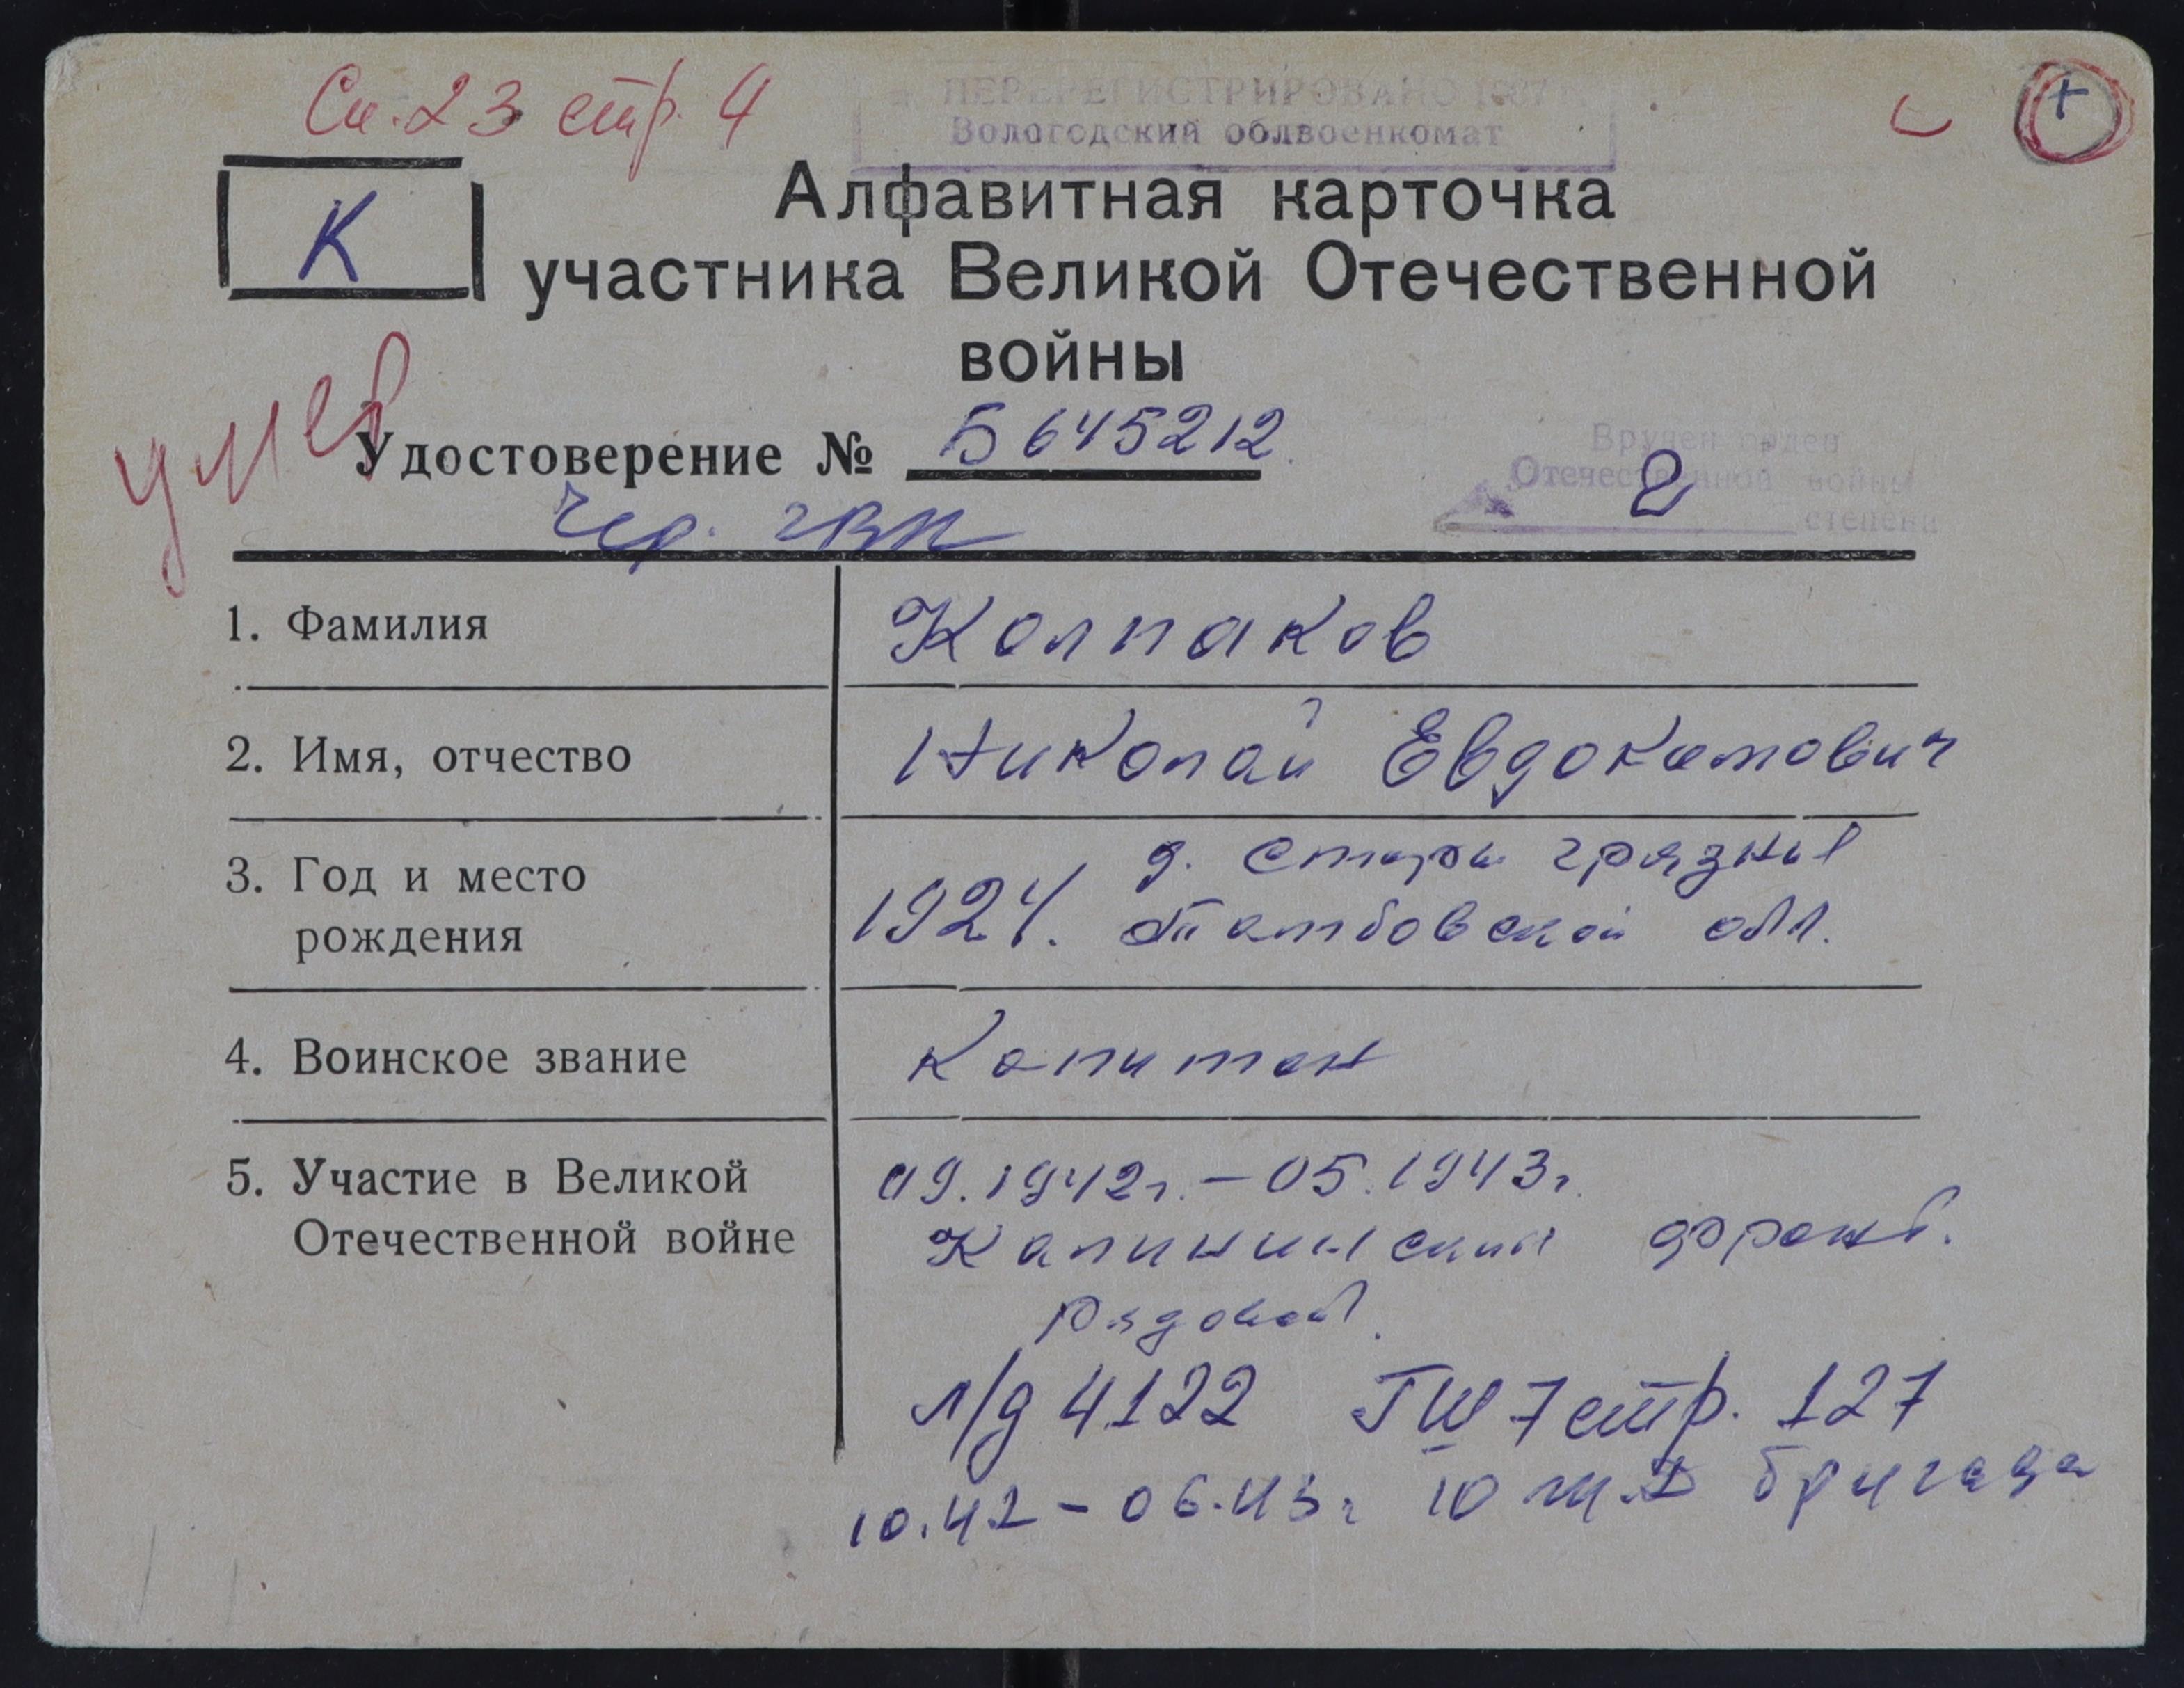 Сп. 23 стр. 4
ПЕРЕРЕГИСТРИРОВАНО 1987 г.
Вологодский облвоенкомат
+
К
Алфавитная карточка
участника Великой Отечественной
войны
умер
Удостоверение № Б 645212
Вручен орден
Отечественной войны
2 степени
Чер. ГВК
1. Фамилия Колпаков
2. Имя, отчество Николай Евдокимович
3. Год и место
рождения
д.
1924. Тамбовской обл.
4. Воинское звание Капитан
5. Участие в Великой
Отечественной войне
09.1942г. – 05.1943г.
Калининский фронт.
Рядовой.
л/д 4122 ГШ 7 стр. 127
10.42 – 06.43г 10 бригада